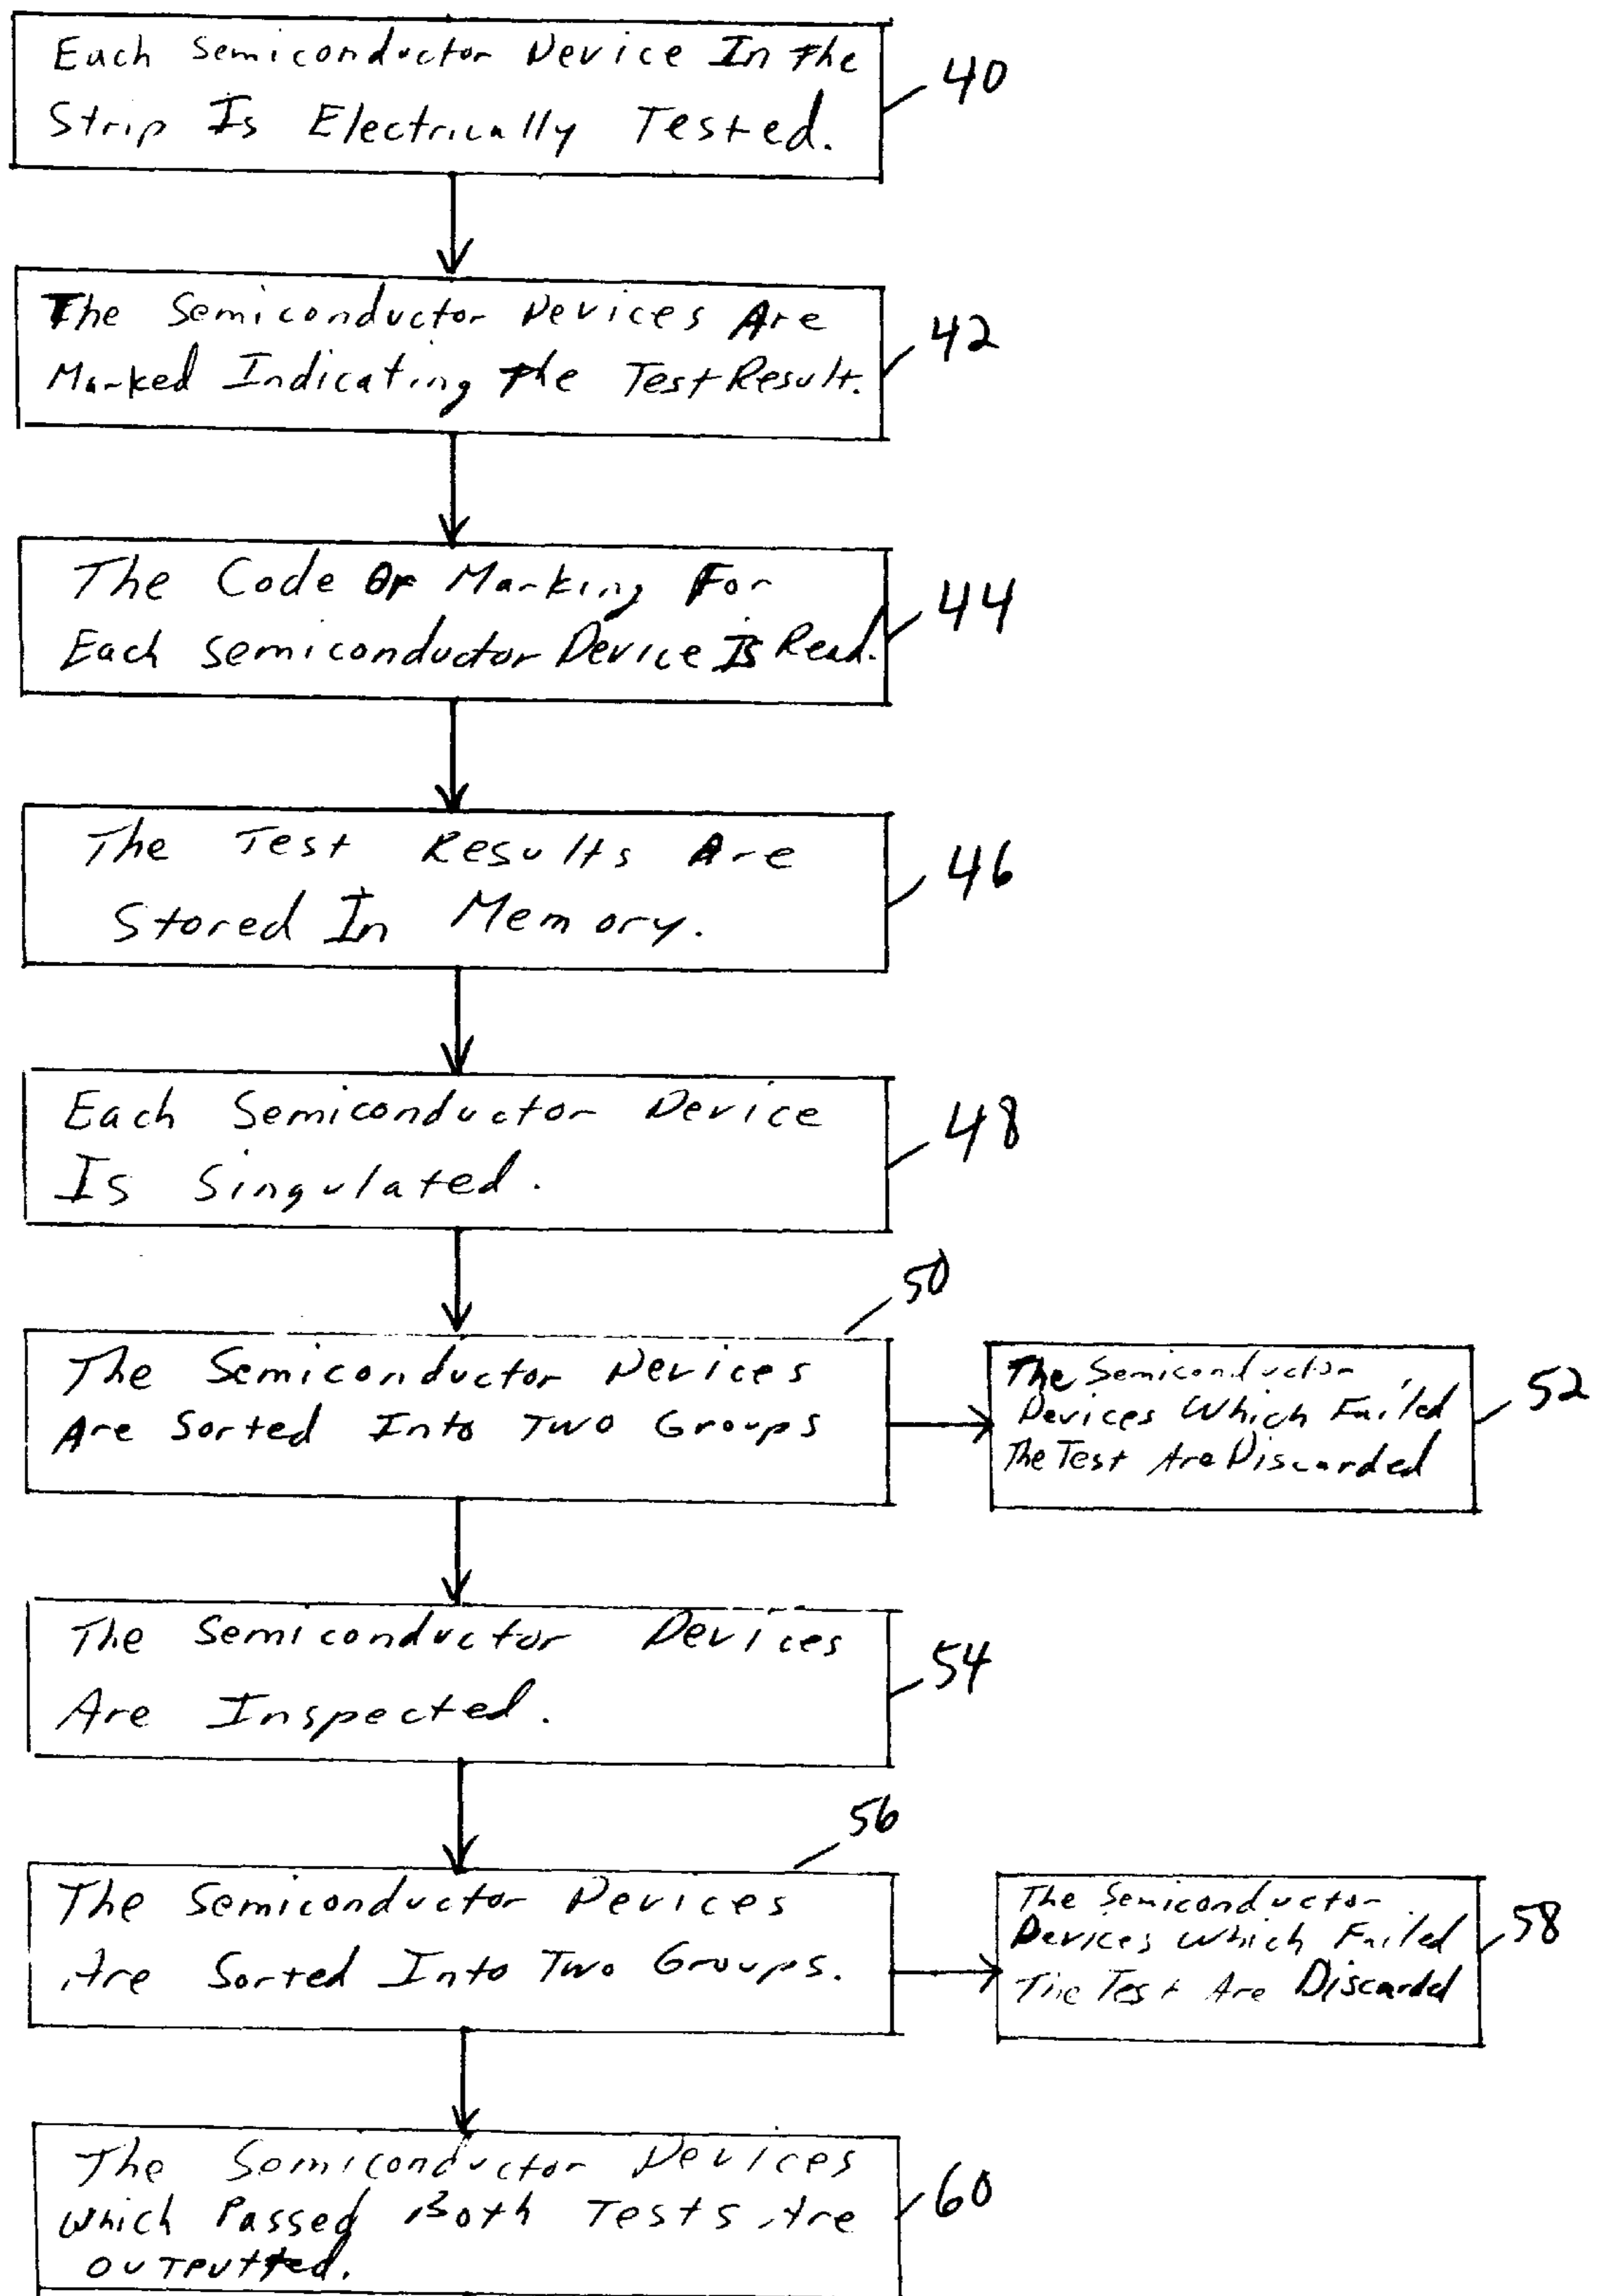 Each Semiconductor Device In The
Strip Is Electrically Tested.
40
The Semiconductor Devices Are
Marked Indicating The Test Result.
42
The Code Of Marking For
Each Semiconductor Device Is Read.
44
The Test Results Are
Stored In Memory.
46
Each Semiconductor Device
Is Singulated.
48
50
The Semiconductor Devices
Are Sorted Into Two Groups
The Semiconductor
Devices Which Failed
The Test Are Discarded
52
The Semiconductor Devices
Are Inspected.
54
56
The Semiconductor Devices
Are Sorted Into Two Groups.
The Semiconductor
Devices Which Failed
The Test Are Discarded
58
The Semiconductor Devices
Which Passed Both Tests Are
Outputted.
60